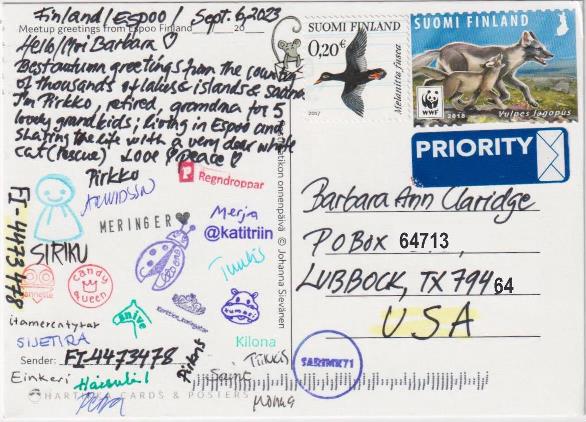 Finland/Espoo/ Sept. 6, 2023
Meetup greetings from Espoo Finland 20
Hello/Moi Barbara ♡
Best autumn greetings from the country
of thousands of lakes & islands & saunas
I'm Pirkko, retired, grandma for 5
lovely grandkids; living in Espoo and
sharing the life with a very dear white
cat (rescue) Love & Peace ♡
Pirkko
ARWIDSSON
Regndroppar
MERINGER
Merja
@katitriin
FI-4473478
SIRIKU
Tuukis
annette
candy
queen
anive
tumasi
itamerentytar
SIJETIRA
Kilona
Sender: FI-4473478
Einkeri
Pirkris
Saint
Tiikks
SARIMK71
HARTIKKA CARDS & POSTERS
Petra
Monna
onnenpäivä © Johanna Sievänen
SUOMI FINLAND
0,20 €
Melanitta fusca
2017
SUOMI FINLAND
WWF
2018
Vulpes lagopus
PRIORITY
Barbara Ann Claridge
PO Box 64713
LUBBOCK, TX 79464
USA